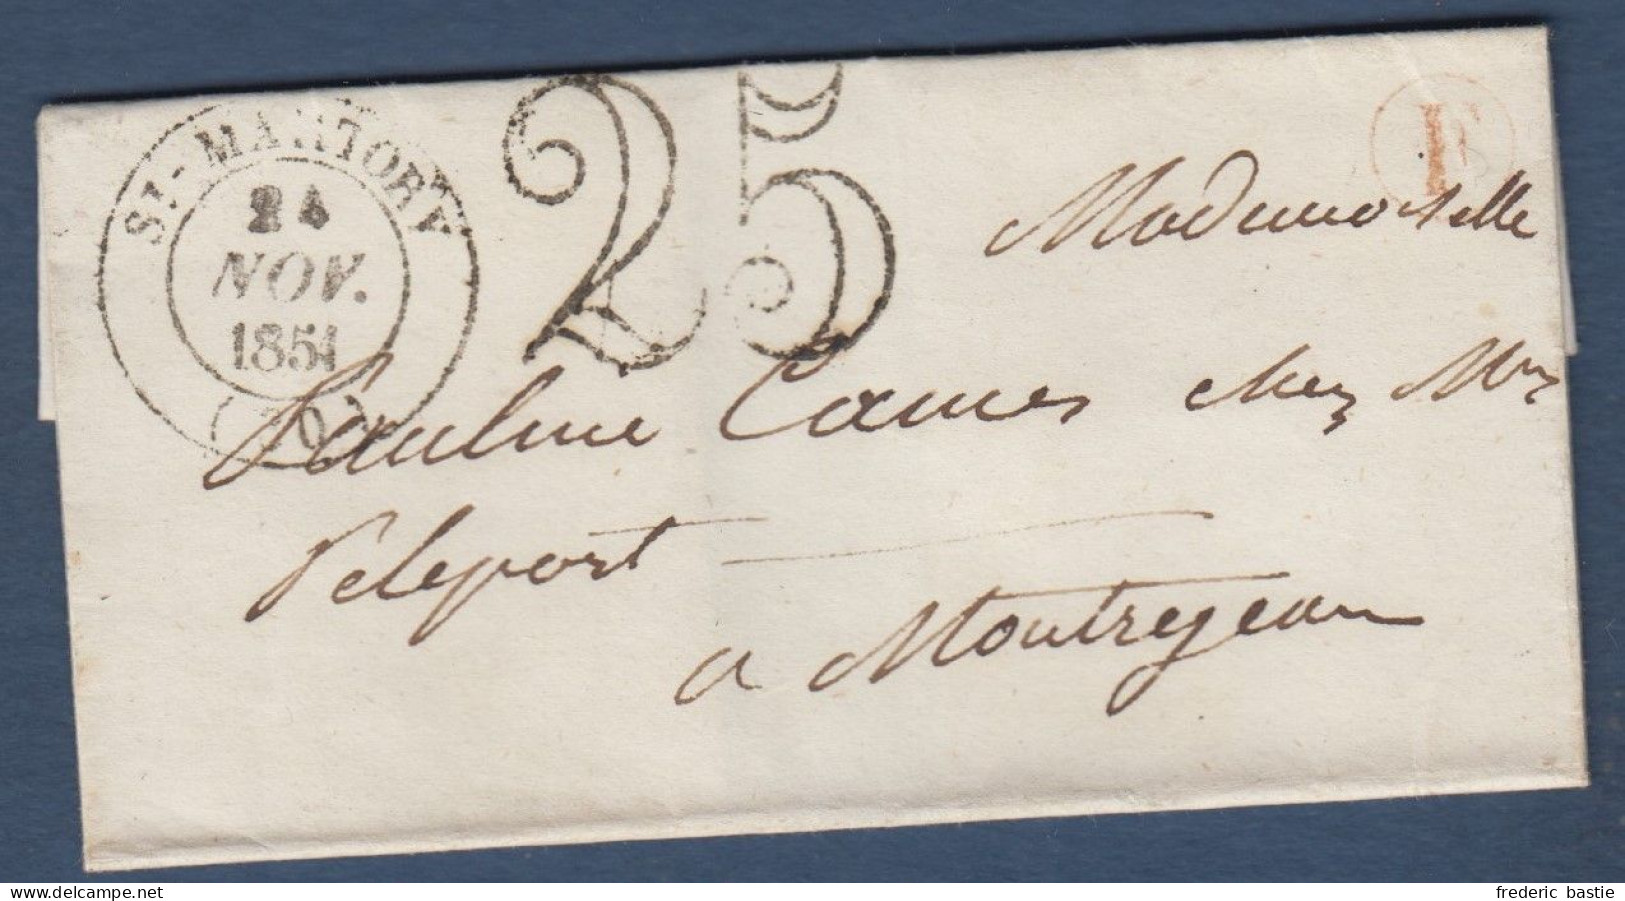 ST-MARTORY
24
NOV.
1851
(30)
25
F
Mademoiselle
Pauline Cames chez Mrs
Peleport
a Montrejeau
frederic bastie